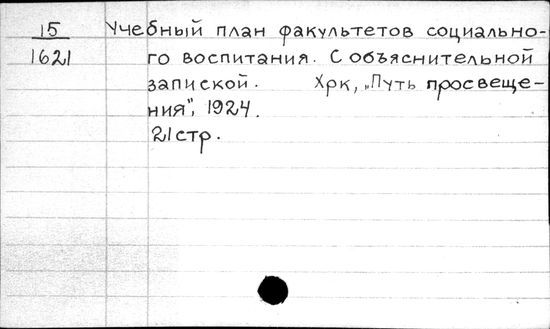 15 Учебный план факультетов социально-
1621 го воспитания. С объяснительной
запиской. Хрк, „Путь просвеще-
ния", 1924.
21 стр.